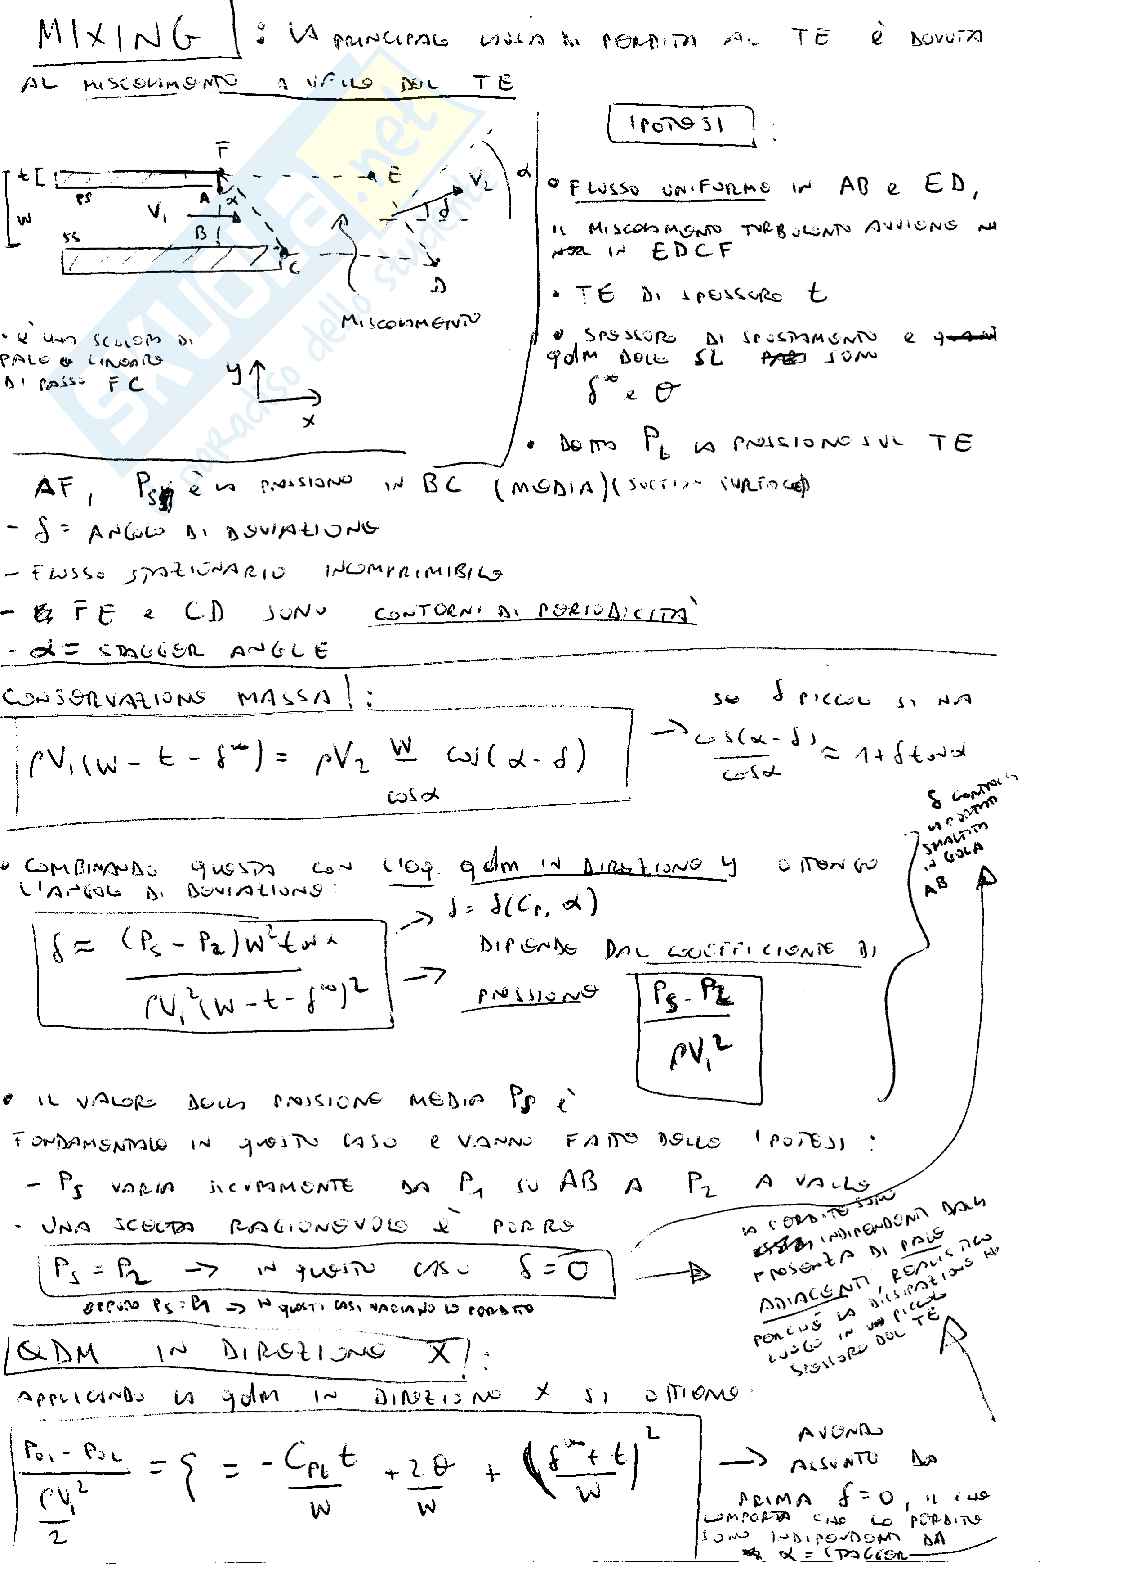 MIXING : LA PRINCIPALE CAUSA DI PERDITA AL TE È DOVUTA
AL MISCOLAMENTO A VALLE DEL TE
IPOTESI :
t
W
PS
SS
F
A
α
V₁
B
C
E
V₂
δ
α
D
MISCOLAMENTO
y
x
• È UNA SCHIERA DI
PALE LINEARE
DI PASSO FC
• FLUSSO UNIFORME IN AB e ED,
IL MISCOLAMENTO TURBOLENTO AVVIENE
IN EDCF
• TE DI SPESSORE t
• SPESSORE DI SPOSTAMENTO e
qdm DELLO SL SONO
δ* e θ
• DETTA Pt LA PRESSIONE SUL TE
AF, Ps È LA PRESSIONE IN BC (MEDIA) (SUCTION SURFACE)
- δ = ANGOLO DI DEVIAZIONE
- FLUSSO STAZIONARIO INCOMPRIMIBILE
- FE e CD SONO CONTORNI DI PERIODICITÀ
- α = STAGGER ANGLE
CONSERVAZIONE MASSA :
ρV₁(W - t - δ*) = ρV₂ W/cosα cos(α - δ)
SE δ PICCOLO SI HA
→ cos(α - δ)/cosα ≈ 1 + δ tanα
δ CONTROLLA
LA PORTATA
SMALTITA
IN GOLA
AB
• COMBINANDO QUESTA CON L'EQ. qdm IN DIREZIONE y OTTENGO
L'ANGOLO DI DEVIAZIONE:
δ ≈ (Ps - P2)W² tanα / ρV₁²(W - t - δ*)²
→ δ = δ(Cp, α)
→ DIPENDE DAL COEFFICIENTE DI
PRESSIONE
Ps - P2 / ρV₁²
• IL VALORE DELLA PRESSIONE MEDIA Ps È
FONDAMENTALE IN QUESTO CASO E VANNO FATTE DELLE IPOTESI :
- Ps VARIA SICURAMENTE DA P1 SU AB A P2 A VALLE
- UNA SCELTA RAGIONEVOLE È PORRE
Ps = P2 → IN QUESTO CASO δ = 0
OPPURE Ps = P1 → IN QUESTI CASI VARIANO LE PERDITE
LE PERDITE SONO
INDIPENDENTI DALLA
PRESENZA DI PALE
ADIACENTI, REALISTICO
PERCHÉ LA DISSIPAZIONE HA
LUOGO IN UN PICCOLO
SPESSORE DEL TE
QDM IN DIREZIONE X :
APPLICANDO LA qdm IN DIREZIONE X SI OTTIENE:
P01 - P02 / ρV₁²/2 = ξ = - Cpt t/W + 2θ/W + (δ* + t / W)²
→ AVENDO
ASSUNTO DA
PRIMA δ = 0, IL CHE
COMPORTA CHE LE PERDITE
SONO INDIPENDENTI DA
α = STAGGER